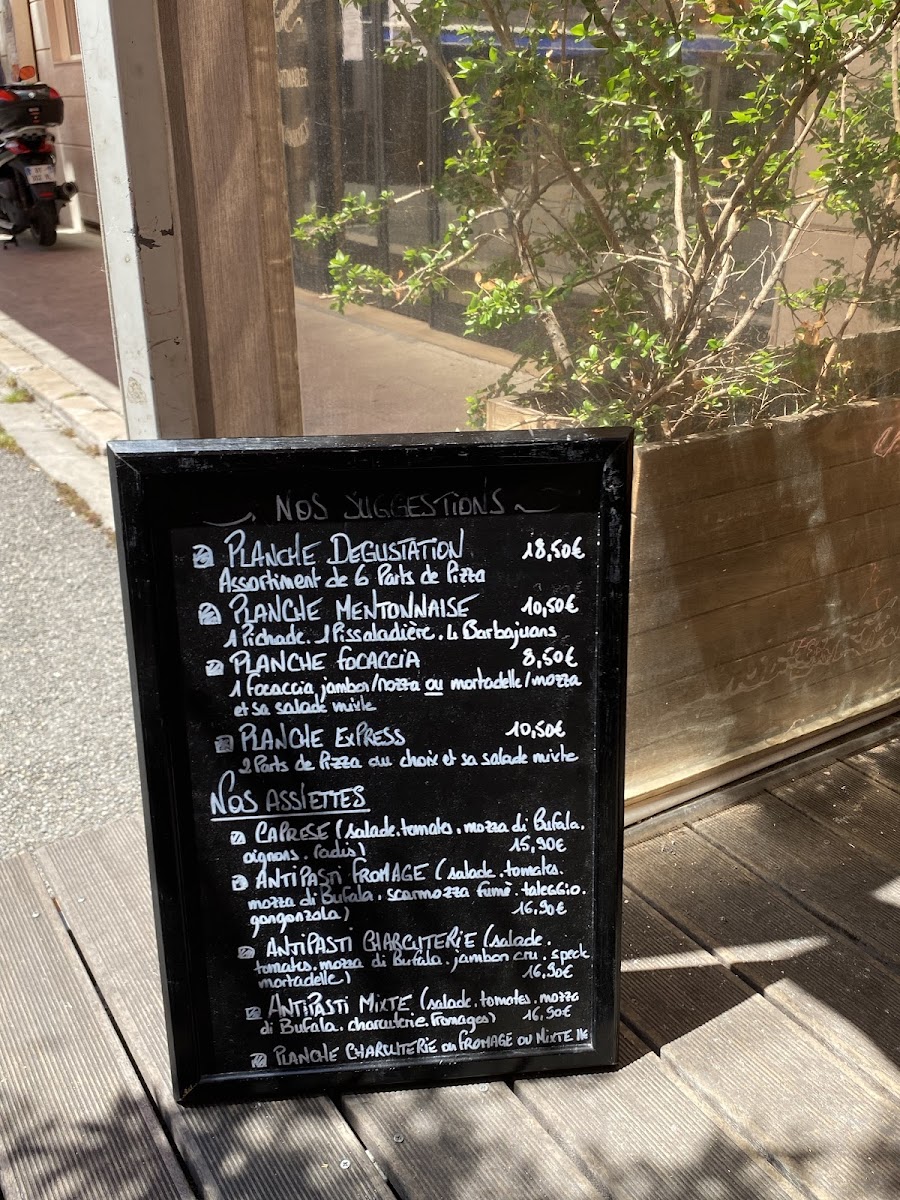 NOS SUGGESTIONS
PLANCHE DEGUSTATION 18,50€
Assortiment de 6 Parts de Pizza
PLANCHE MENTONNAISE 10,50€
1 Pichade. 1 Pissaladière. 4 Barbajuans
PLANCHE FOCACCIA 8,50€
1 focaccia jambon/mozza ou mortadelle/mozza
et sa salade mixte
PLANCHE EXPRESS 10,50€
2 Parts de Pizza au choix et sa salade mixte
NOS ASSIETTES
CAPRESE (salade. tomates. mozza di Bufala.
oignons. radis) 15,90€
ANTIPASTI FROMAGE (salade. tomates.
mozza di Bufala. scarmozza fumé. taleggio.
gongonzola) 16,90€
ANTIPASTI CHARCUTERIE (salade.
tomates. mozza di Bufala. jambon cru. speck
mortadelle) 16,90€
ANTIPASTI MIXTE (salade. tomates. mozza
di Bufala. charcuterie. fromages) 16,90€
PLANCHE CHARCUTERIE ou FROMAGE OU MIXTE 11€